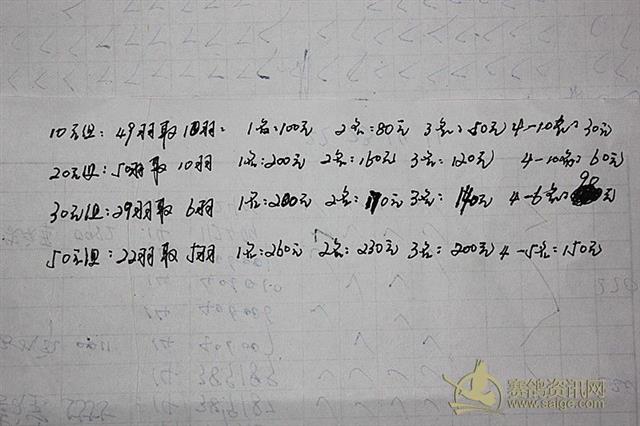 10元组:49羽取10羽: 1名:100元 2名:80元 3名:50元 4-10名:30元
20元组:50羽取10羽 1名:200元 2名:160元 3名:120元 4-10名:60元
30元组:29羽取6羽 1名:200元 2名:170元 3名:140元 4-6名:90元
50元组:22羽取5羽 1名:260元 2名:230元 3名:200元 4-5名:150元
赛鸽资讯网
www.saige.com